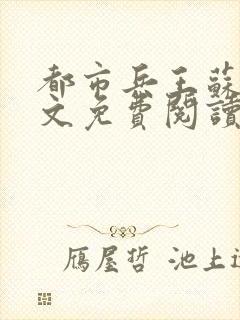 都市兵王蘇
文免費閱讀
雁屋哲 池上遼